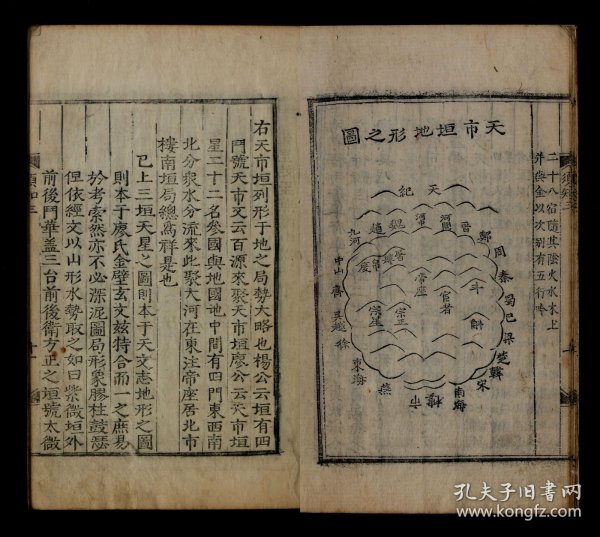 二十八宿隨其陰火水水上
天市垣地形之圖
天紀
晋
鄭
周
秦
蜀
巴
梁
楚
韓
宋
南海
燕
東海
徐
齊
中山
九河
趙
魏
河間
帝座
宦者
斗
斛
宗正
宗星
市樓
右天市垣列形于地之局勢大略也楊公云垣有四
門號天市又云百源來聚天市垣廖公云天市垣
星二十二名參國與地國地中間有四門東西南
北分衆水分流來此聚大河在東注帝座居北市
樓南垣局總爲群是也
已上三垣天星之圖則本于天文志地形之圖
則本于廖氏金壁玄文玆特合而一之庶易
於考索然亦不必深泥圖局形象膠柱鼓瑟
但依經文以山形水勢取之如曰紫微垣外
前後門華盖三台前後衛方正之垣號太微
孔夫子旧书网
www.kongfz.com